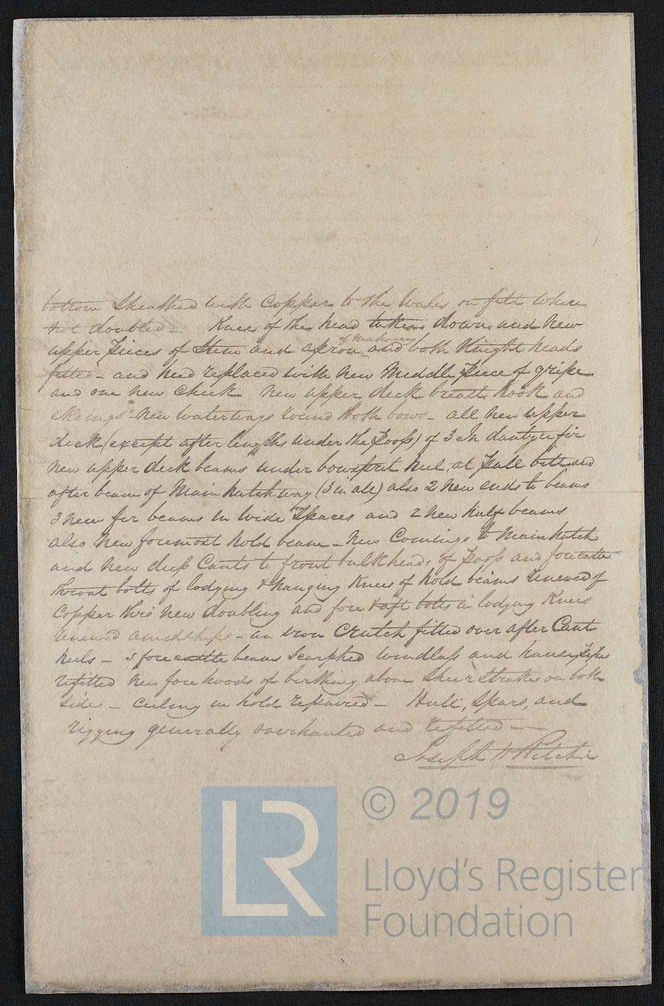 bottom Sheathed with Copper to the Wales on felt where
not doubled - Knees of the head taken down and new
of Mahogany
upper pieces of Stem and apron and both Knight heads
fitted - and new replaced with new Middle Piece of gripe
and one new Cheek New upper deck breast hook and
ekeings - New waterways round both bows - all new upper
deck (except after lengths under the Poop) of 3 In dantzic fir
new upper deck beams under bowsprit heel, at Pall bitt and
after beam of Main hatchway (3 in all) also 2 new ends to beams
3 new fir beams in wide Spaces and 2 new half beams
also New foremost hold beam - New Coamings to Main hatch
and new deep Cants to front bulkheads of Poop and forecastle
throat bolts of lodging & hanging Knees of hold beams renewed of
Copper thro new doubling and fore & aft bolts in lodging Knees
renewed amidships - an iron Crutch fitted over after Cant
heels - 3 forecastle beams Scarphed windlass and hawse pipes
refitted New fore hoods of berthing above Sheer Strakes on both
Side - Ceiling in hold repaired - Hull, Spars, and
rigging generally overhauled and refitted -
Joseph H Ritchie
LR
© 2019
Lloyd's Register
Foundation